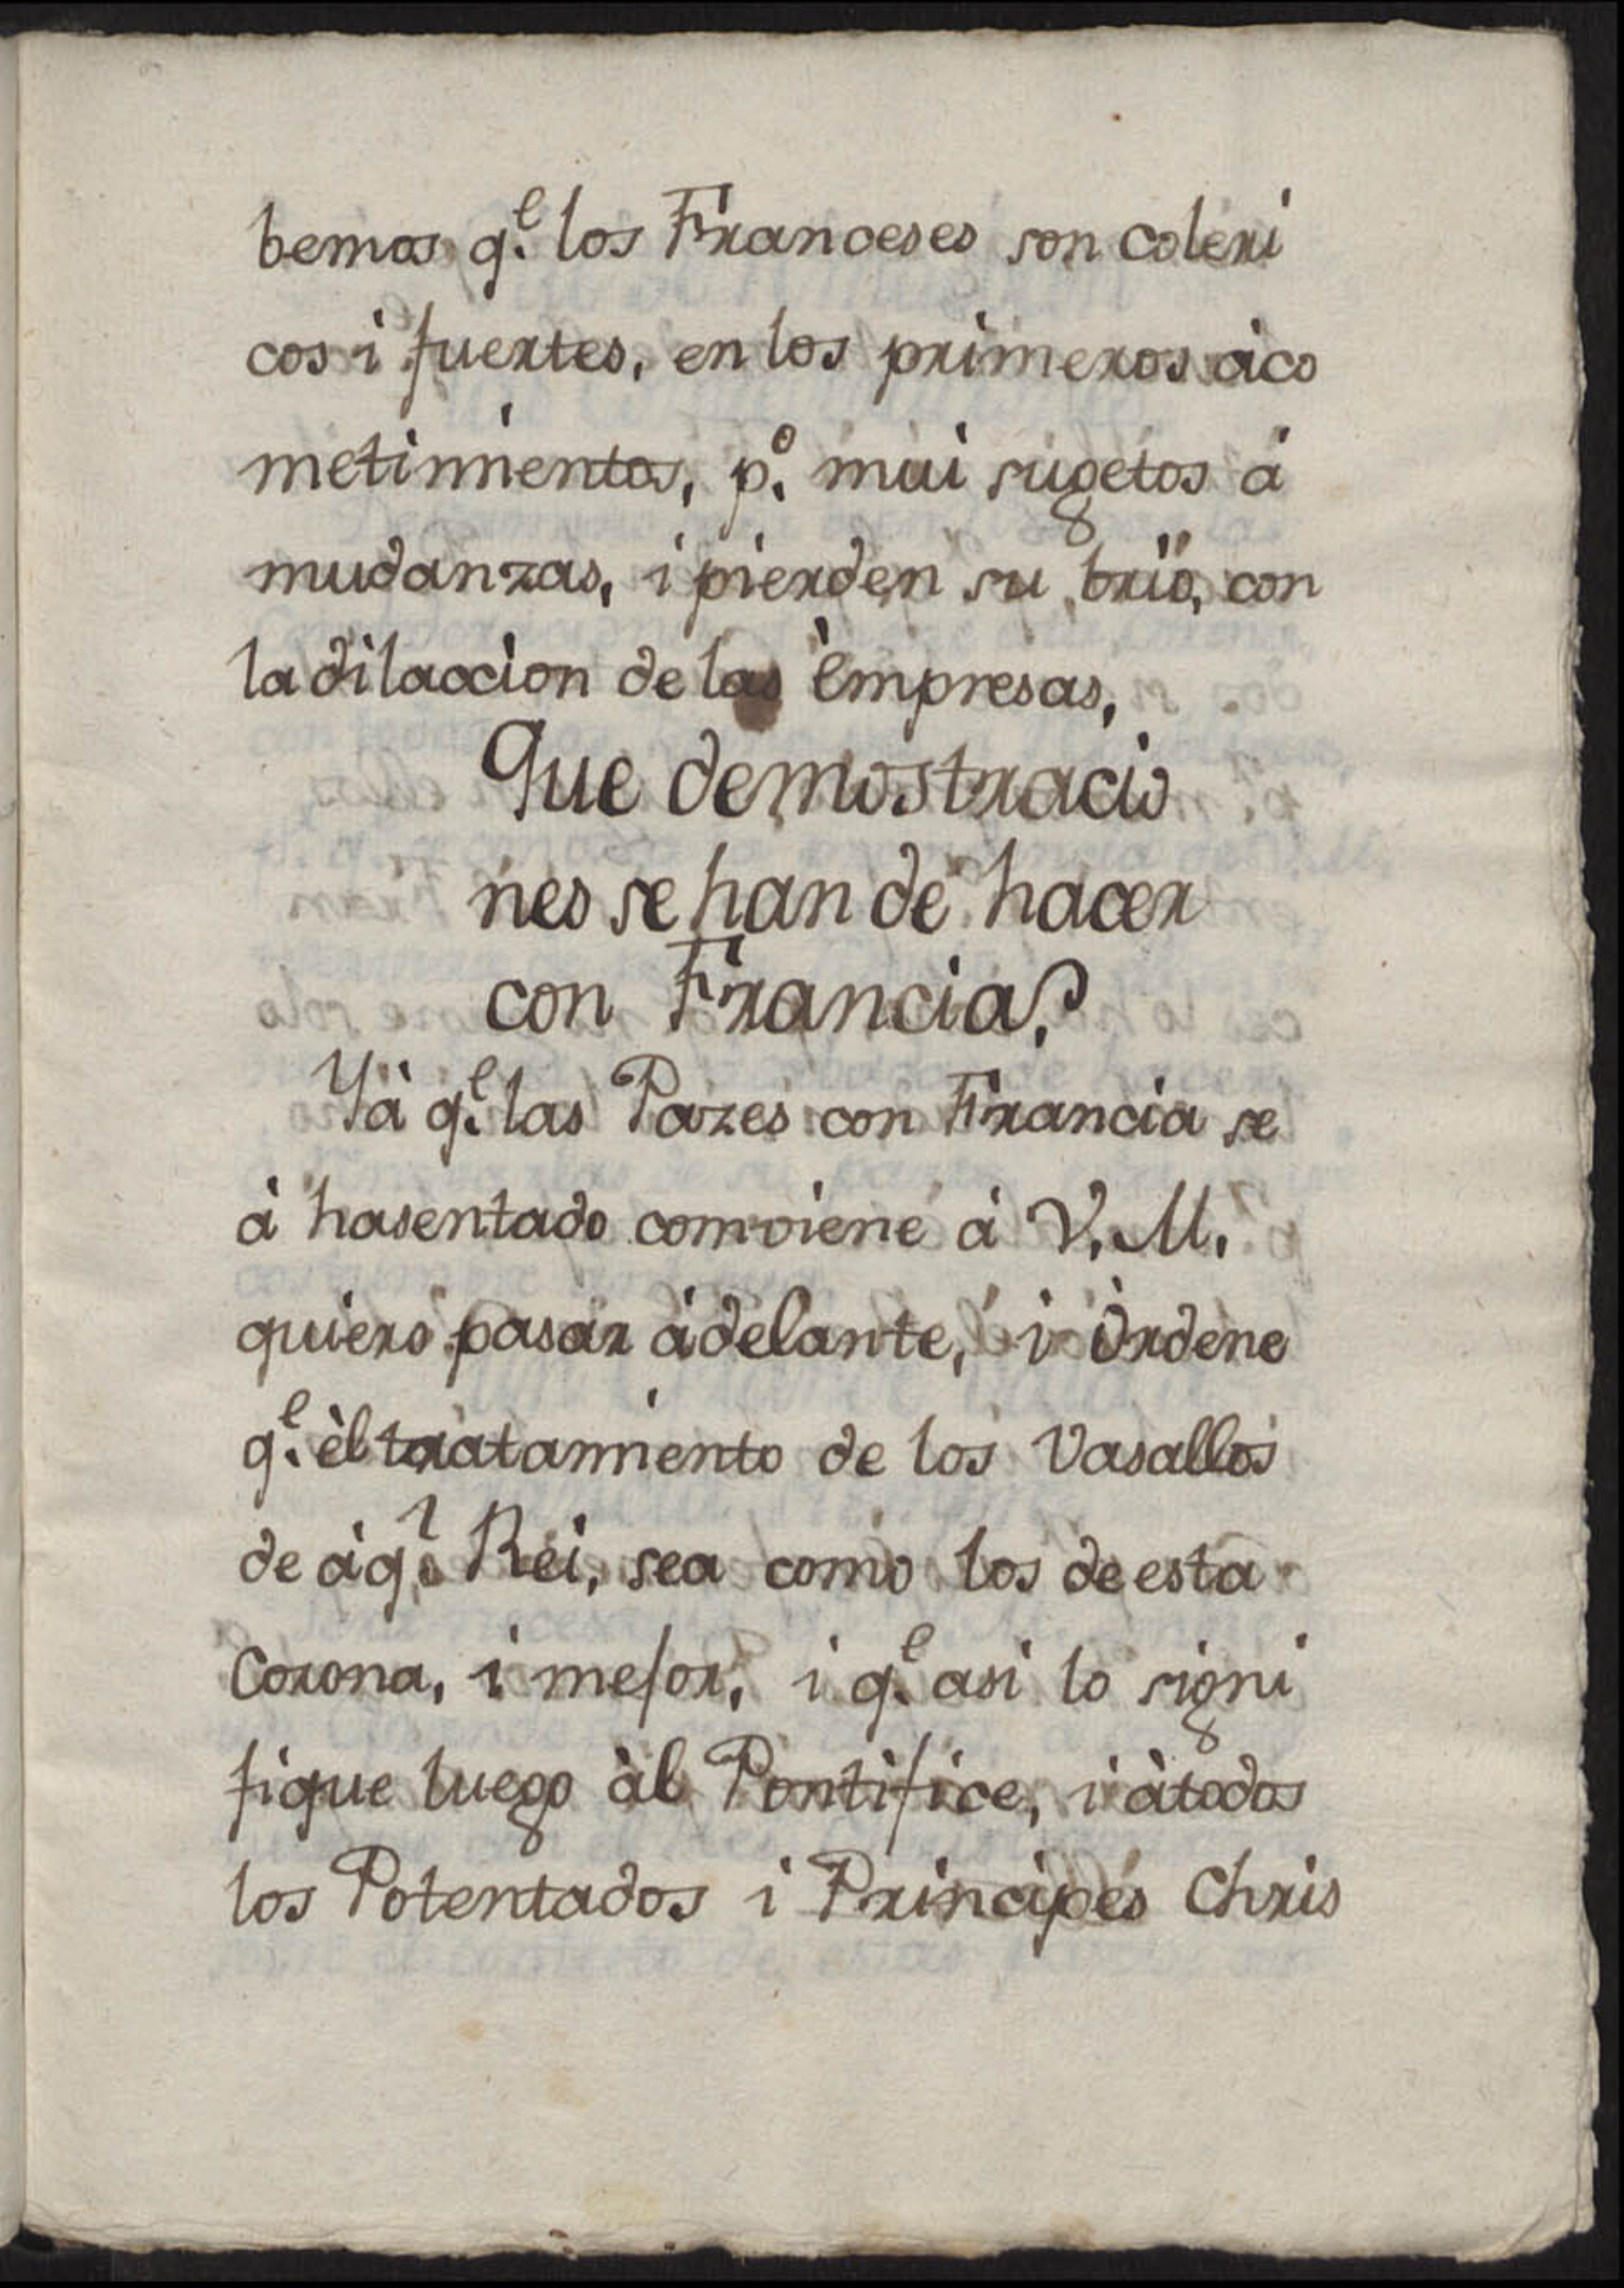 bemos q.ᵉ los Franceses son coleri
cos i fuertes, en los primeros àco
metimientos, p.º mui sugetos à
mudanzas, i pierden su brïo, con
la dilaccion de las èmpresas,
Que demostracio
nes se han de hacer
con Francia?
Yà q.ᵉ las Pazes con Francia se
à hasentado comviene à V. M.
quiero pasar àdelante, i òrdene
q.ᵉ èl tratamiento de los Vasallos
de àq.ˡ Rei, sea como los de esta
Corona, i mejor, i q.ᵉ asi lo signi
fique luego àl Pontifice, i àtodos
los Potentados i Principes Chris